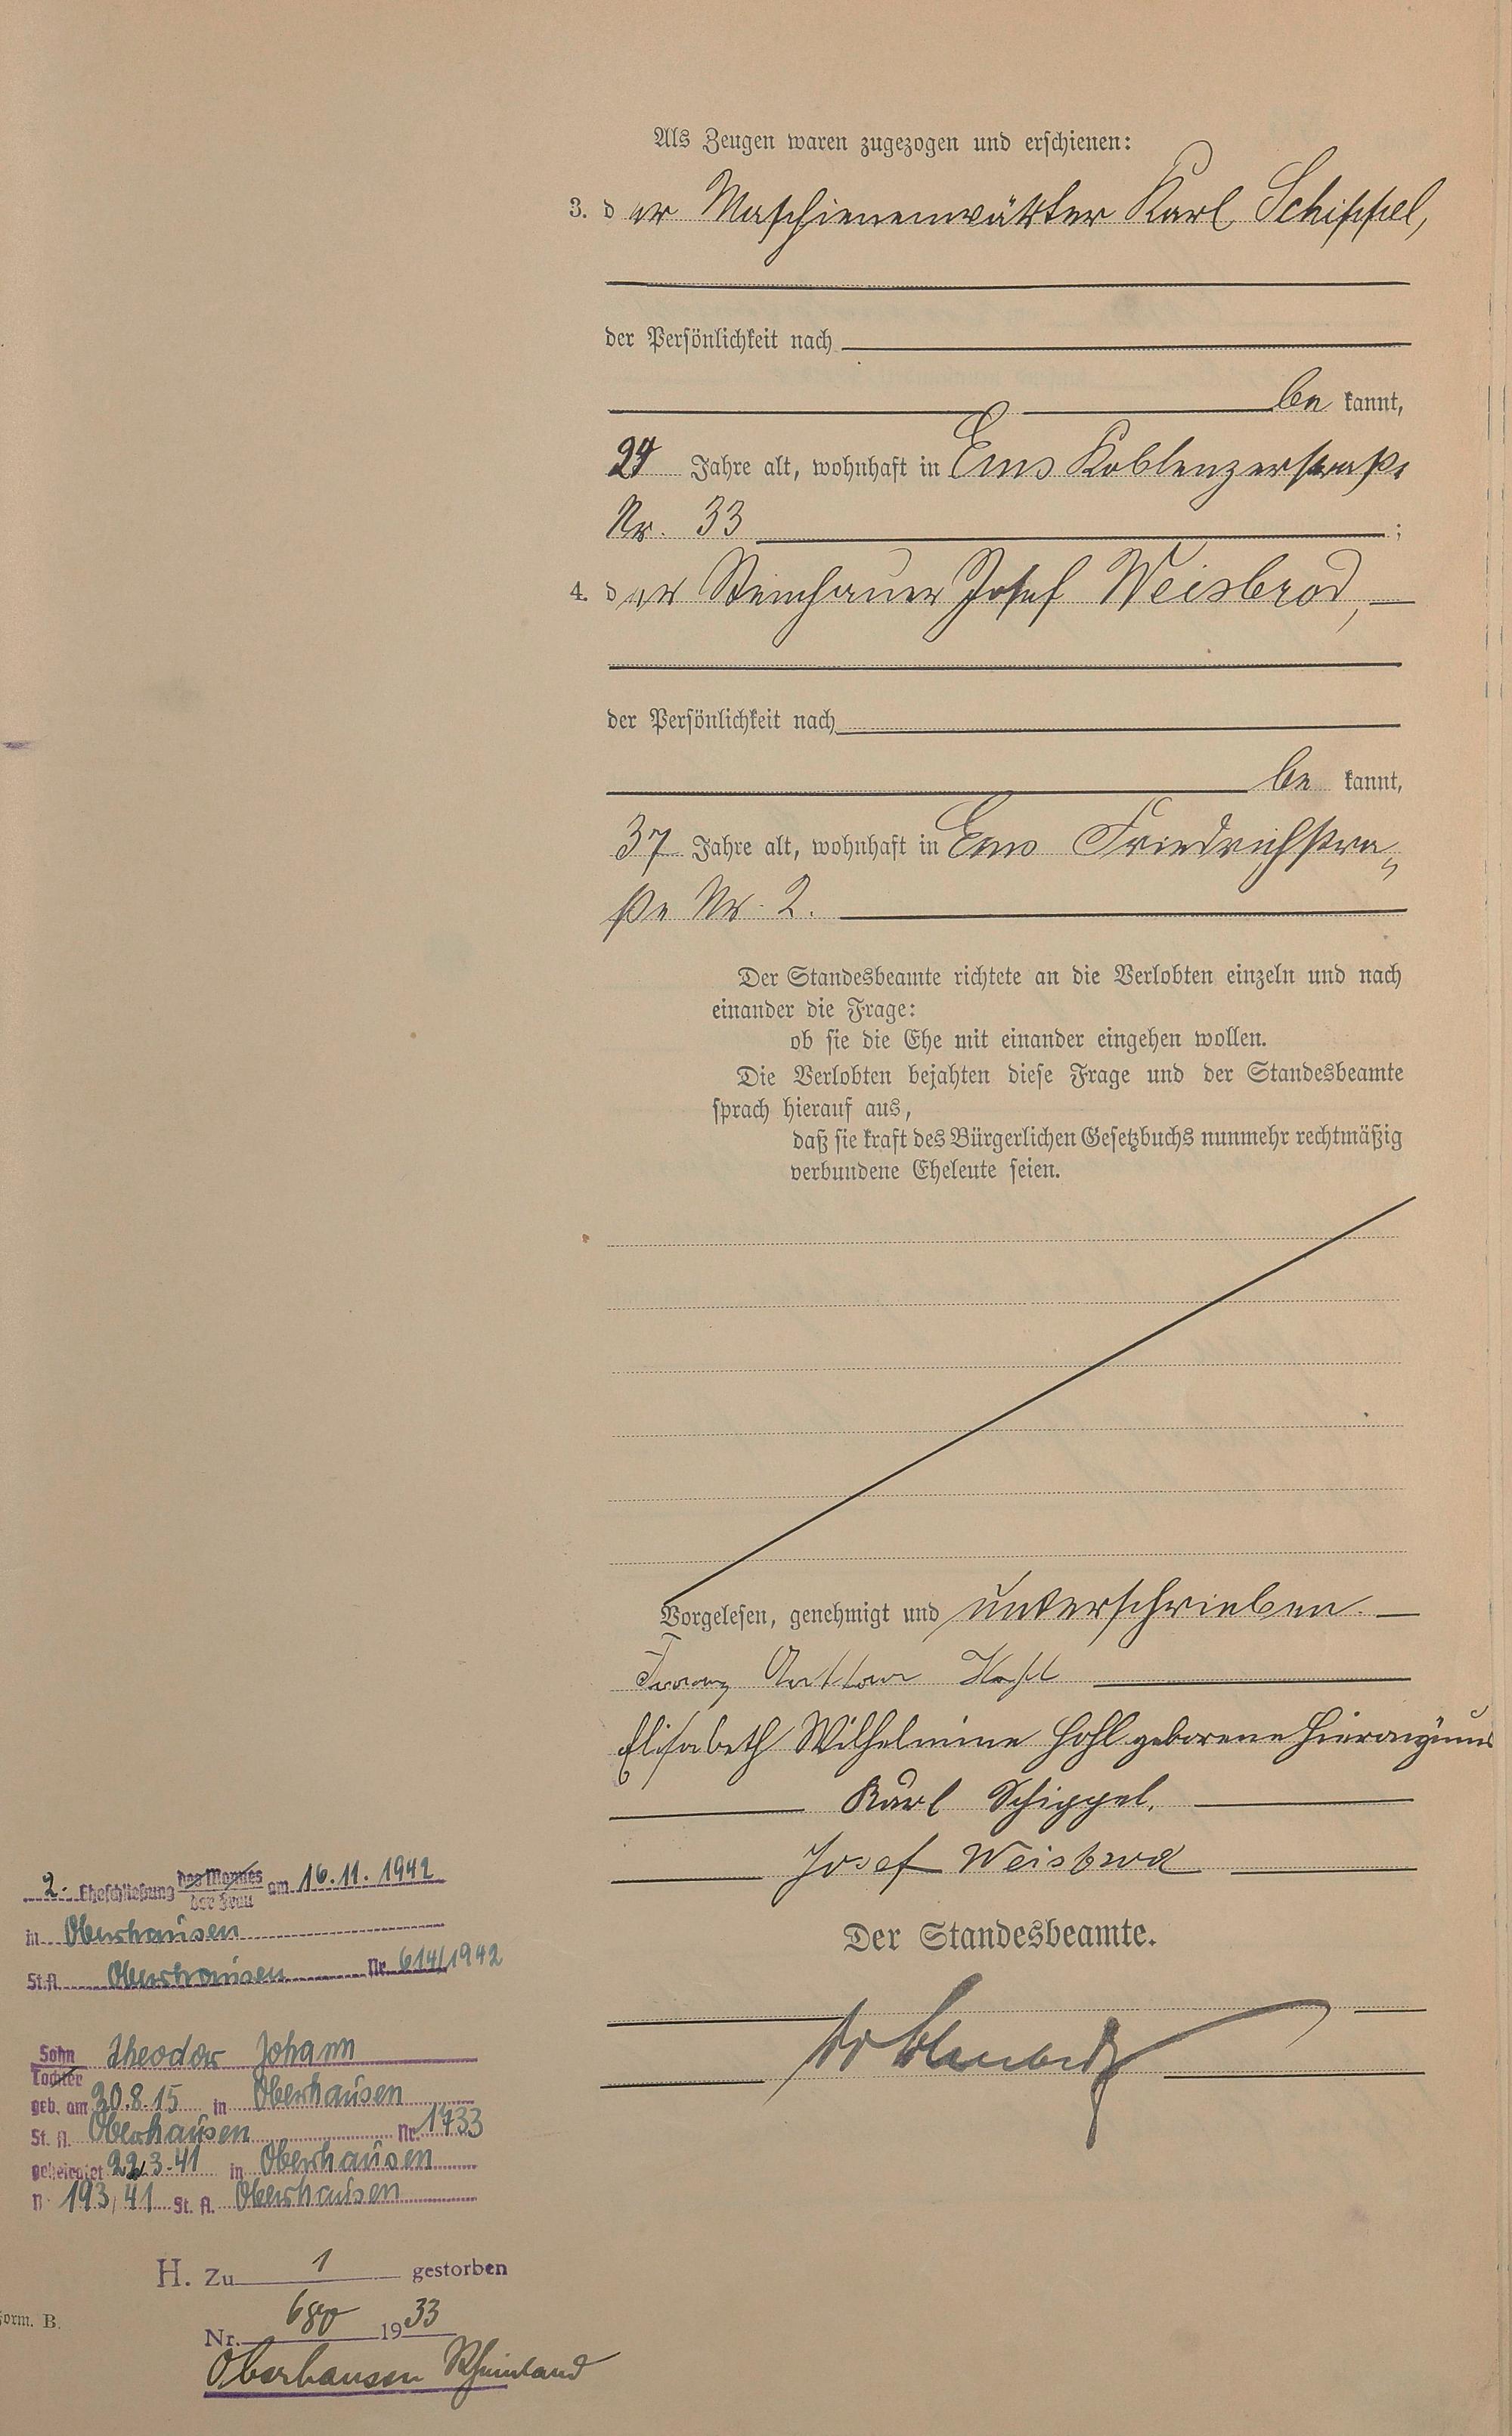 Als Zeugen waren zugezogen und erschienen:
3. der Maschienenwärter Karl Schippel,
der Persönlichkeit nach
be kannt,
Jahre alt, wohnhaft in Ems Koblenzerstraße
Nr. 33 ;
4. der Steinhauer Josef Weisbrod,
der Persönlichkeit nach
be kannt,
37 Jahre alt, wohnhaft in Ems Friedrichstra„
ße Nr. 2.
Der Standesbeamte richtete an die Verlobten einzeln und nach
einander die Frage:
ob sie die Ehe mit einander eingehen wollen.
Die Verlobten bejahten diese Frage und der Standesbeamte
sprach hierauf aus,
daß sie kraft des Bürgerlichen Gesetzbuchs nunmehr rechtmäßig
verbundene Eheleute seien.
Vorgelesen, genehmigt und unterschrieben.
Franz Anton Hohl
Elisabeth Wilhelmine Hohl geborene Hieronymus
Karl Schippel.
Josef Weisbrod
Der Standesbeamte.
2. Eheschließung des Mannes
der Frau am 16.11.1942
in Oberhausen
St.A. Oberhausen Nr. 614/1942
Sohn Theodor Johann
Tochter
geb. am 20.8.15 in Oberhausen
St. A. Oberhausen Nr. 1733
geheiratet 22.3.41 in Oberhausen
n. 193/41 St. A. Oberhausen
H. Zu 1 gestorben
Nr. 680 1933
Oberhausen Rheinland
Form. B.